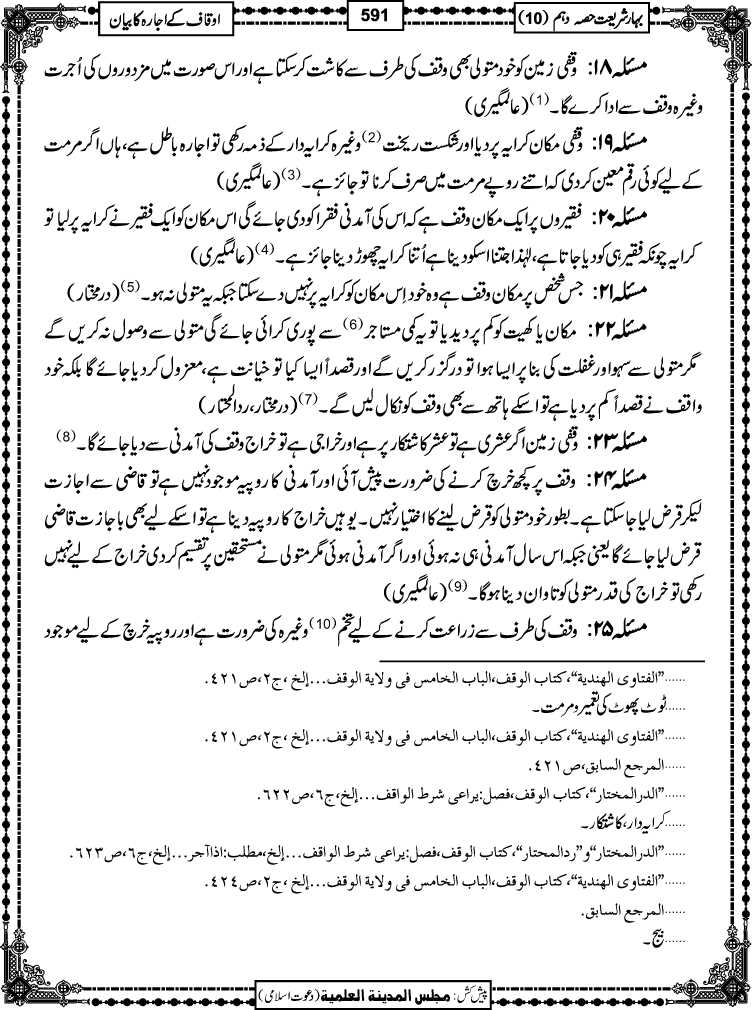 بہارِ شریعت حصہ دہم (10)
591
اوقاف کے اجارہ کا بیان
مسئلہ ۱۸: وقفی زمین کو خود متولی بھی وقف کی طرف سے کاشت کرسکتا ہے اور اس صورت میں مزدوروں کی اُجرت
وغیرہ وقف سے ادا کرے گا۔(1) (عالمگیری)
مسئلہ ۱۹: وقفی مکان کرایہ پر دیا اور شکست ریخت(2) وغیرہ کرایہ دار کے ذمہ رکھی تو اجارہ باطل ہے، ہاں اگر مرمت
کے لیے کوئی رقم معین کردی کہ اتنے روپے مرمت میں صرف کرنا تو جائز ہے۔(3) (عالمگیری)
مسئلہ ۲۰: فقیروں پر ایک مکان وقف ہے کہ اس کی آمدنی فقرا کو دی جائے گی اس مکان کو ایک فقیر نے کرایہ پر لیا تو
کرایہ چونکہ فقیر ہی کو دیا جاتا ہے، لہٰذا جتنا اسکو دینا ہے اُتنا کرایہ چھوڑ دینا جائز ہے۔(4) (عالمگیری)
مسئلہ ۲۱: جس شخص پر مکان وقف ہے وہ خود اِس مکان کو کرایہ پر نہیں دے سکتا جبکہ یہ متولی نہ ہو۔(5) (درمختار)
مسئلہ ۲۲: مکان یا کھیت کو کم پر دیدیا تو یہ کمی مستاجر(6) سے پوری کرائی جائے گی متولی سے وصول نہ کریں گے
مگر متولی سے سہو اور غفلت کی بنا پر ایسا ہوا تو درگزر کریں گے اور قصداً ایسا کیا تو خیانت ہے، معزول کردیا جائے گا بلکہ خود
واقف نے قصداً کم پر دیا ہے تو اسکے ہاتھ سے بھی وقف کو نکال لیں گے۔(7) (درمختار، ردالمحتار)
مسئلہ ۲۳: وقفی زمین اگر عشری ہے تو عشر کاشتکار پر ہے اور خراجی ہے تو خراج وقف کی آمدنی سے دیا جائے گا۔(8)
مسئلہ ۲۴: وقف پر کچھ خرچ کرنے کی ضرورت پیش آئی اور آمدنی کا روپیہ موجود نہیں ہے تو قاضی سے اجازت
لیکر قرض لیا جاسکتا ہے۔ بطور خود متولی کو قرض لینے کا اختیار نہیں۔ یوہیں خراج کا روپیہ دینا ہے تو اسکے لیے بھی باجازت قاضی
قرض لیا جائے گا یعنی جبکہ اس سال آمدنی ہی نہ ہوئی اور اگر آمدنی ہوئی مگر متولی نے مستحقین پر تقسیم کردی خراج کے لیے نہیں
رکھی تو خراج کی قدر متولی کو تاوان دینا ہوگا۔(9) (عالمگیری)
مسئلہ ۲۵: وقف کی طرف سے زراعت کرنے کے لیے تخم(10) وغیرہ کی ضرورت ہے اور روپیہ خرچ کے لیے موجود
......"الفتاوى الهندية"، كتاب الوقف، الباب الخامس فى ولاية الوقف...إلخ، ج٢، ص٤٢١.
......ٹوٹ پھوٹ کی تعمیر و مرمت۔
......"الفتاوى الهندية"، كتاب الوقف، الباب الخامس فى ولاية الوقف...إلخ، ج٢، ص٤٢١.
......المرجع السابق، ص٤٢١.
......"الدرالمختار"، كتاب الوقف، فصل: يراعى شرط الواقف...إلخ، ج٦، ص٦٢٢.
......کرایہ دار، کاشتکار۔
......"الدرالمختار" و"ردالمحتار"، كتاب الوقف، فصل: يراعى شرط الواقف...إلخ، مطلب: اذاآجر...إلخ، ج٦، ص٦٢٣.
......"الفتاوى الهندية"، كتاب الوقف، الباب الخامس فى ولاية الوقف...إلخ، ج٢، ص٤٢٤.
......المرجع السابق.
......بیج۔
پیش کش: مجلس المدینة العلمیة (دعوت اسلامی)